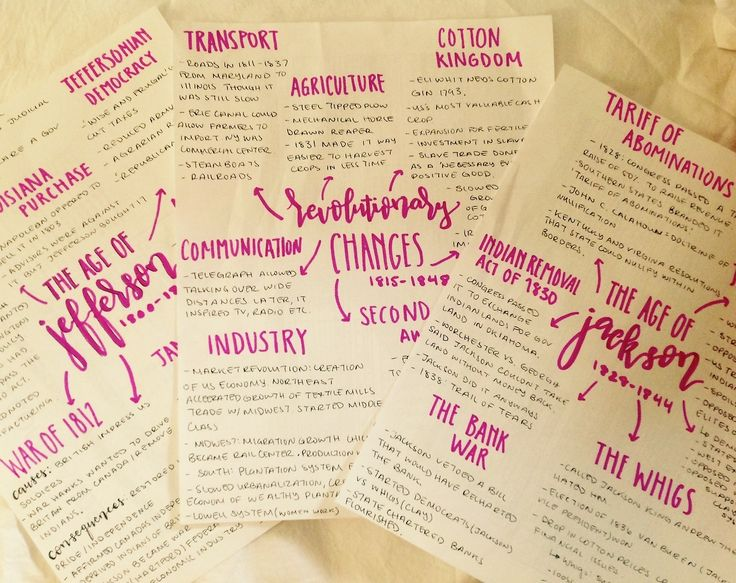 JEFFERSONIAN
DEMOCRACY
- WISE AND FRUGAL
CUT TAXES
- REDUCED ARM
- AGRARIAN
"REPUBLICAN
JUDICIAL
A GOV
PURCHASE
- NAPOLEAN OFFERED TO
SELL IT IN 1803
- ADVISORS WERE AGAINST
IT BUT JEFFERSON BOUGHT IT
THE AGE OF
jefferson
WAR OF 1812
causes: BRITISH IMPRESS US
SOLDIERS
- WAR HAWKS WANTED TO DRIVE
BRITAIN FROM CANADA/REMOVE
INDIANS.
consequences: RESTORED
PRIDE/INDEPENDENCE
- AFFIRMED CANADAS INDEPEN
- DEPRIVED INDIANS OF BRIT
BECAME WAR
(HARTFORD) FEDER
ECONOMIC INDUSTR
TRANSPORT
- ROADS IN 1811-1837
FROM MARYLAND TO
ILLINOIS THOUGH IT
WAS STILL SLOW
- ERIE CANAL COULD
ALLOW FARMERS TO
IMPORT. NY WAS
COMMERCIAL CENTER
- STEAMBOATS
- RAILROADS
AGRICULTURE
- STEEL TIPPED PLOW
- MECHANICAL HORSE
DRAWN REAPER
- 1831 MADE IT WAY
EASIER TO HARVEST
CROPS IN LESS TIME
COTTON
KINGDOM
- ELI WHITNEDS COTTON
GIN 1793.
- US'S MOST VALUABLE CASH
CROP
- EXPANSION FOR FERTILE
- INVESTMENT IN SLAVE
- SLAVE TRADE DONE
AS A 'NECESSARY EV
POSITIVE GOOD.
- SLOWED
GROW
OF
revolutionary
CHANGES
1815-1848
COMMUNICATION
- TELEGRAPH ALLOWED
TALKING OVER WIDE
DISTANCES LATER, IT
INSPIRED TV, RADIO ETC.
SECOND
AW
INDUSTRY
- MARKET REVOLUTION: CREATION
OF US ECONOMY. NORTHEAST
ACCELERATED GROWTH OF TEXTILE MILLS
TRADE W/ MIDWEST STARTED MIDDLE
CLASS
- MIDWEST: MIGRATION GROWTH CHIC
BECAME RAIL CENTER. PRODUCTION
- SOUTH: PLANTATION SYSTEM
- SLOWED URBANALIZATION, CRE
ECONOM OF WEALTHY PLANTA
- LOWELL SYSTEM (WOMEN WORK)
TARIFF OF
ABOMINATIONS
- 1828: CONGRESS PASSED A TA
RAISE OF 50% TO RAISE REVENUE
- SOUTHERN STATES BRANDED IT
'TARIFF OF ABOMINATIONS'.
- JOHN C. CALAHOUN: DOCTRINE OF
NULLIFICATION
- KENTUCKY AND VIRGINA RESOLUTIONS
THAT STATE COULD NULLIFY WITHIN
BORDERS.
INDIAN REMOVAL
ACT OF 1830
- CONGRESS PASSED
IT TO EXCHANGE
INDIAN LANDS FOR GOV
LAND IN OKLAHOMA.
- WORCHESTER VS. GEORGIA
SAID JACKSON COULDNT TAKE
LAND WITHOUT MONEY BACK,
JACKSON DID IT ANYWAYS
- 1838: TRAIL OF TEARS
THE AGE OF
jackson
1828-1844
THE BANK
WAR
- JACKSON VETOED A BILL
THAT WOULD HAVE RECHARTED
THE BANK
- STARTED DEMOCRATS (JACKSON)
VS WHIGS (CLAY)
- STATE CHARTERED BANKS
FLOURISHED.
THE WHIGS
- CALLED JACKSON KING ANDREW THE
HATED HIM
- ELECTION OF 1836 VAN BUREN (JACK
VICE PRESIDENT) WON
- DROP IN COTTON PRICES
FINANCIAL ISSUES
- WHIGS